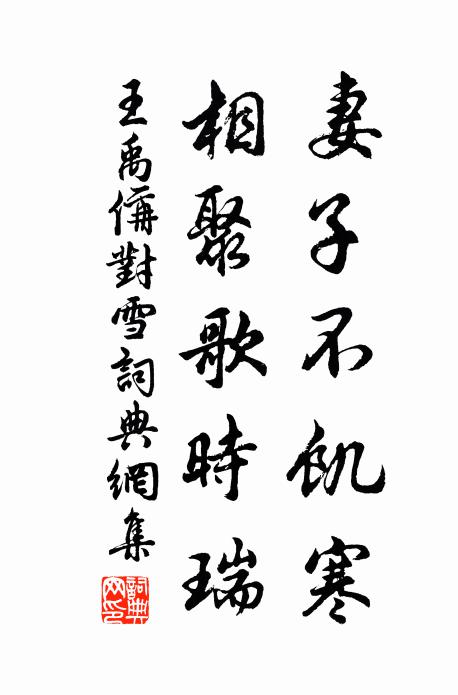 妻子不飢寒
相聚歌時瑞
王禹偁對雪詞典網集
詞典網印